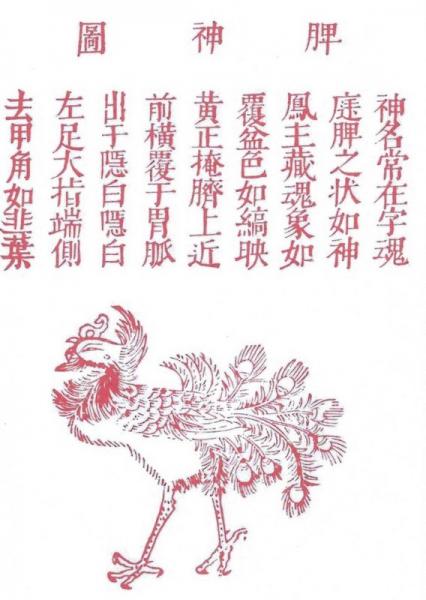 脾神圖
神名常在字魂
庭脾之状如神
鳳主藏魂象如
覆盆色如縞映
黃正掩臍上近
前橫覆于胃脈
出于隠白隠白
左足大指端側
去甲角如韭葉